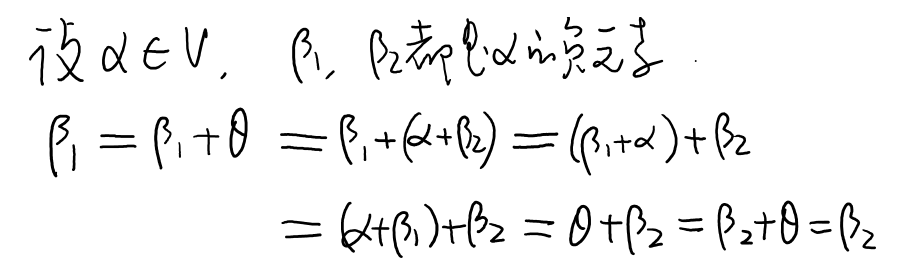 设 α∈V, β₁, β₂都是α的负元素.
β₁ = β₁+θ = β₁+(α+β₂) = (β₁+α)+β₂
= (α+β₁)+β₂ = θ+β₂ = β₂+θ = β₂